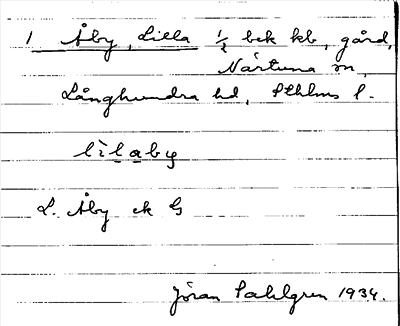 1 Åby, Lilla ½ bek kb, gård,
Närtuna sn,
Långhundra hd, Sthlms l.
lìlaby
L. Åby ek G
Jöran Sahlgren 1934.